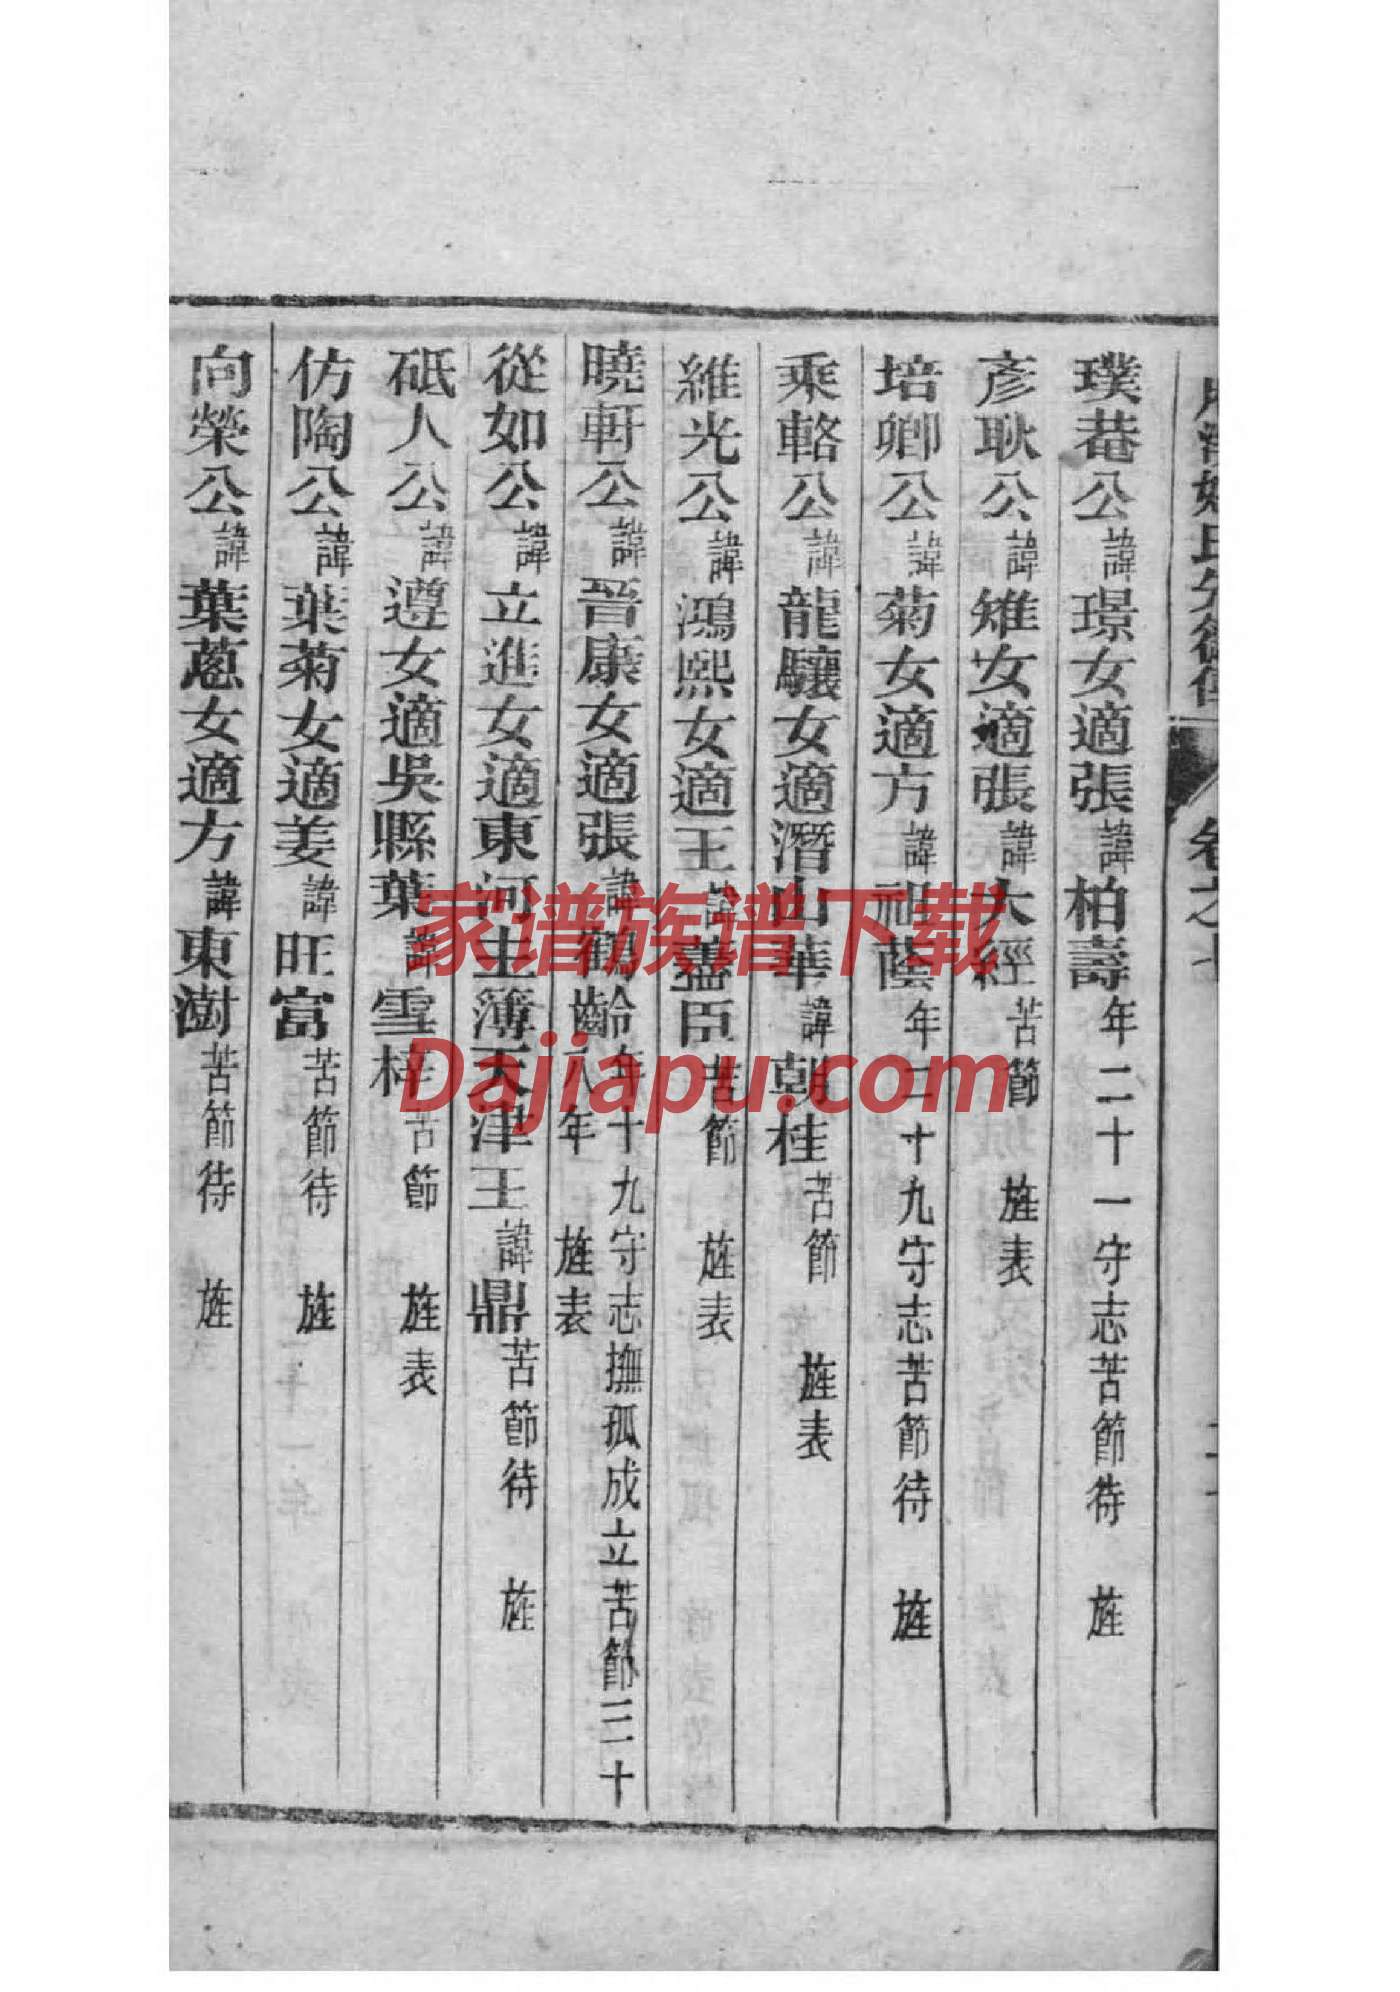 璞菴公諱璟女適張諱柏壽年二十一守志苦節待　旌
彥耿公諱雉女適張諱大經苦節　旌表
培卿公諱菊女適方諱祖蔭年二十九守志苦節待　旌
乘輅公諱龍驤女適潛山華諱朝桂苦節　旌表
維光公諱鴻熙女適王諱藎臣苦節　旌表
曉軒公諱晉康女適張諱鶴齡年十九守志撫孤成立苦節二十八年　旌表
從如公諱立進女適東河主簿天津王諱鼎苦節待　旌
砥人公諱遵女適吳縣葉諱雪桂苦節　旌表
仿陶公諱葉菊女適姜諱旺富苦節待　旌
向榮公諱葉蔥女適方諱東澍苦節待　旌
家谱族谱下载
Dajiapu.com